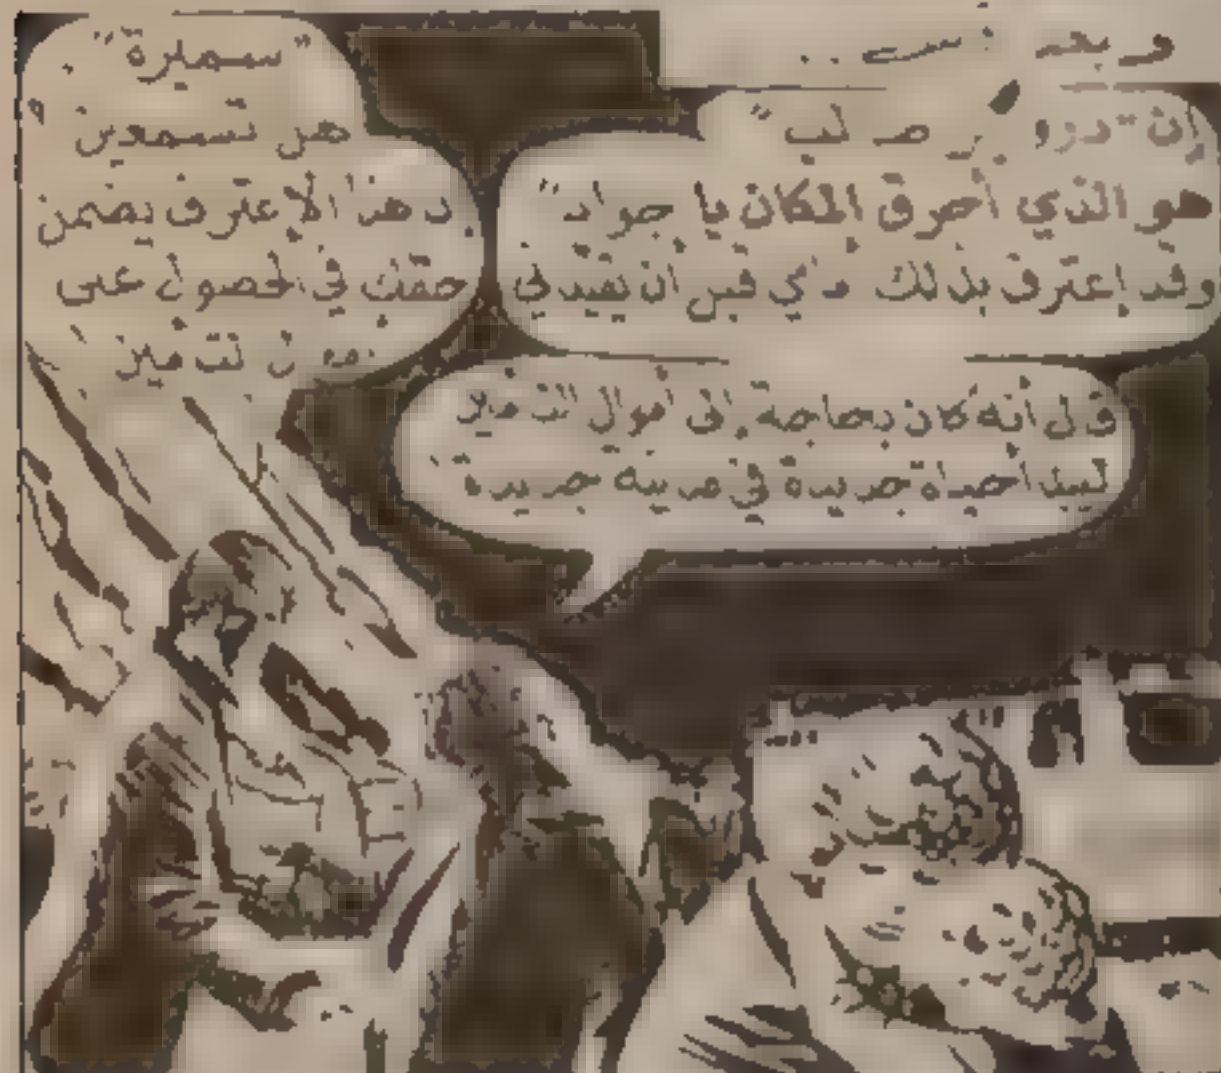 وبعد ..
إن "درو
هو الذي أحرق المكان يا جواد"
وقد إعترف بذلك قبل أن يقيدني
قال أنه كان بحاجة إلى أموال التأمين
ليبدأ حياة جديدة في مدينة جديدة
"سميرة"
هل تسمعين ؟
هذا الإعتراف يضمن
حقك في الحصول على
التأمين